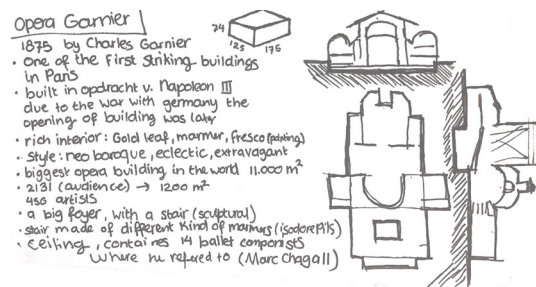 Opera Garnier
74
125 175
1875 by Charles Garnier
• one of the first striking buildings
in Paris
• built in opdracht v. Napoleon III
due to the war with germany the
opening of building was later
• rich interior: Gold leaf, marmer, fresco (painting)
• style: neo baroque, eclectic, extravagant
• biggest opera building in the world 11.000 m²
• 2131 (audience) → 1200 m²
450 artists
• a big foyer, with a stair (sculptural)
• stair made of different kind of marmers (isodore Pils)
• ceiling, containes 14 ballet componists
where he refered to (Marc Chagall)